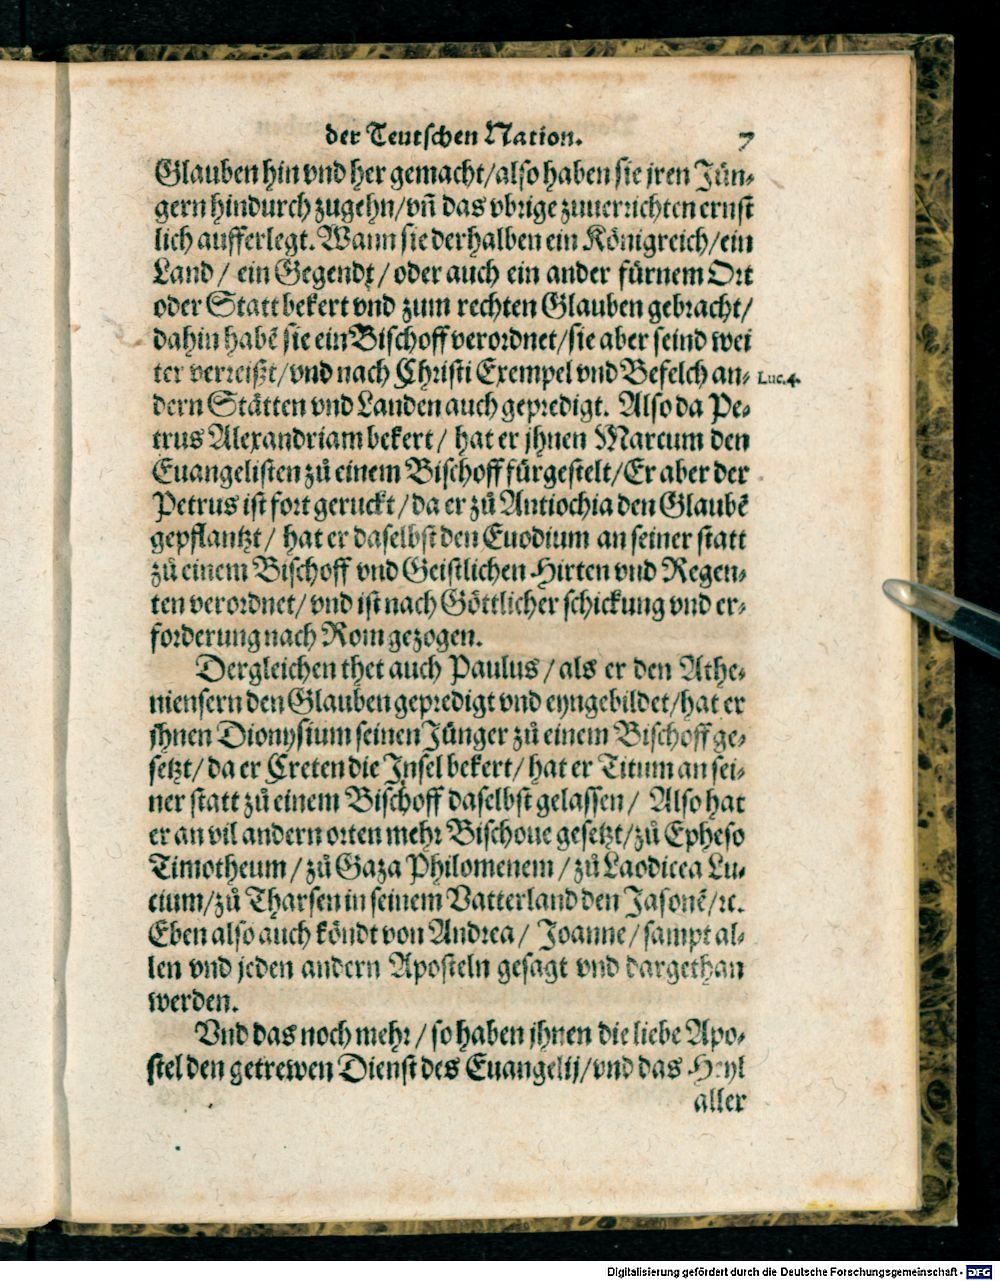 der Teutschen Nation. 7
Glauben hin vnd her gemacht/also haben sie jren Jün⸗
gern hindurch zugehn/vñ das vbrige zuuerrichten ernst
lich aufferlegt. Wann sie derhalben ein Königreich/ein
Land/ ein Gegendt/ oder auch ein ander fürnem Ort
oder Statt bekert vnd zum rechten Glauben gebracht/
dahin habẽ sie ein Bischoff verordnet/sie aber seind wei
ter verreißt/vnd nach Christi Exempel vnd Befelch an⸗ Luc. 4.
dern Stätten vnd Landen auch gepredigt. Also da Pe⸗
trus Alexandriam bekert/ hat er jhnen Marcum den
Euangelisten zů einem Bischoff fürgestelt/Er aber der
Petrus ist fort geruckt/da er zů Antiochia den Glaubẽ
gepflantzt/ hat er daselbst den Euodium an seiner statt
zů einem Bischoff vnd Geistlichen Hirten vnd Regen⸗
ten verordnet/vnd ist nach Göttlicher schickung vnd er⸗
forderung nach Rom gezogen.
Dergleichen thet auch Paulus/als er den Athe⸗
niensern den Glauben gepredigt vnd eyngebildet/hat er
jhnen Dionysium seinen Jünger zů einem Bischoff ge⸗
setzt/da er Creten die Jnsel bekert/hat er Titum an sei⸗
ner statt zů einem Bischoff daselbst gelassen/ Also hat
er an vil andern orten mehr Bischoue gesetzt/zů Epheso
Timotheum/zů Gaza Philomenem/zů Laodicea Lu⸗
cium/zů Tharsen in seinem Vatterland den Jasonẽ/ꝛc.
Eben also auch köndt von Andrea/ Joanne/sampt al⸗
len vnd jeden andern Aposteln gesagt vnd dargethan
werden.
Vnd das noch mehr/so haben jhnen die liebe Apo⸗
stel den getrewen Dienst des Euangelij/vnd das Heyl
aller
Digitalisierung gefördert durch die Deutsche Forschungsgemeinschaft - DFG